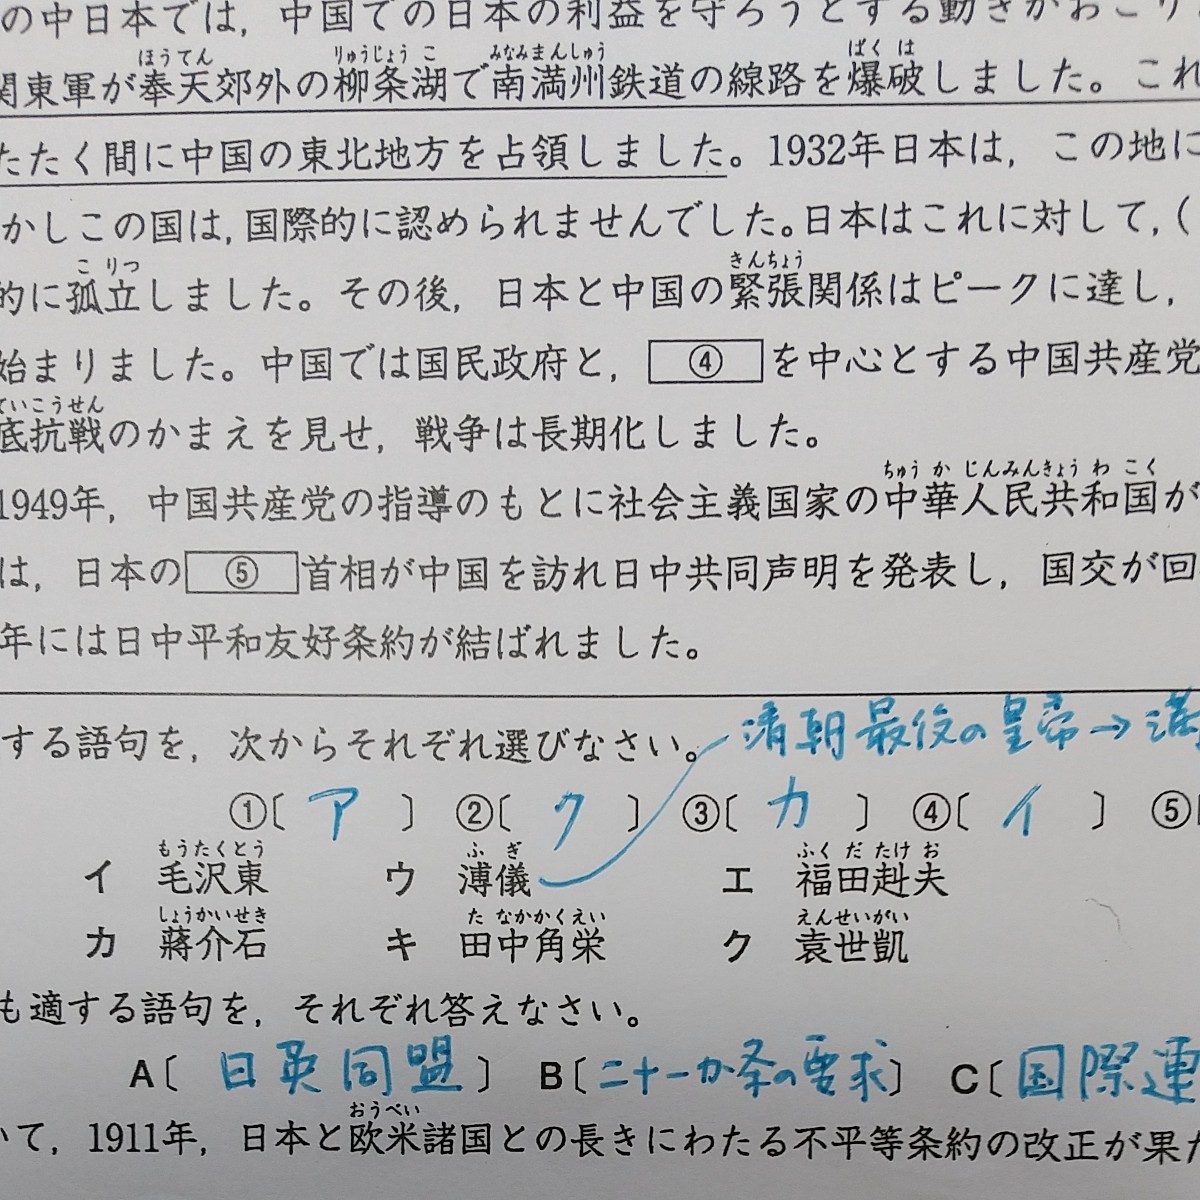 の中日本では，中国での日本の利益を守ろうとする動きがおこり
ほうてん りゅうじょうこ みなみまんしゅう ばくは
関東軍が奉天郊外の柳条湖で南満州鉄道の線路を爆破しました。これ
たたく間に中国の東北地方を占領しました。1932年日本は，この地に
かしこの国は，国際的に認められませんでした。日本はこれに対して，（
こりつ きんちょう
的に孤立しました。その後，日本と中国の緊張関係はピークに達し，
始まりました。中国では国民政府と，④を中心とする中国共産党
ていこうせん
底抗戦のかまえを見せ，戦争は長期化しました。
ちゅうかじんみんきょうわこく
1949年，中国共産党の指導のもとに社会主義国家の中華人民共和国が
は，日本の⑤首相が中国を訪れ日中共同声明を発表し，国交が回
年には日中平和友好条約が結ばれました。
清朝最後の皇帝→満
する語句を，次からそれぞれ選びなさい。
①〔 ア 〕 ②〔 ク 〕 ③〔 カ 〕 ④〔 イ 〕 ⑤〔
もうたくとう ふぎ ふくだたけお
イ 毛沢東 ウ 溥儀 エ 福田赳夫
しょうかいせき たなかかくえい えんせいがい
カ 蔣介石 キ 田中角栄 ク 袁世凱
も適する語句を，それぞれ答えなさい。
A〔 日英同盟 〕 B〔 二十一か条の要求 〕 C〔 国際連
おうべい
いて，1911年，日本と欧米諸国との長きにわたる不平等条約の改正が果た